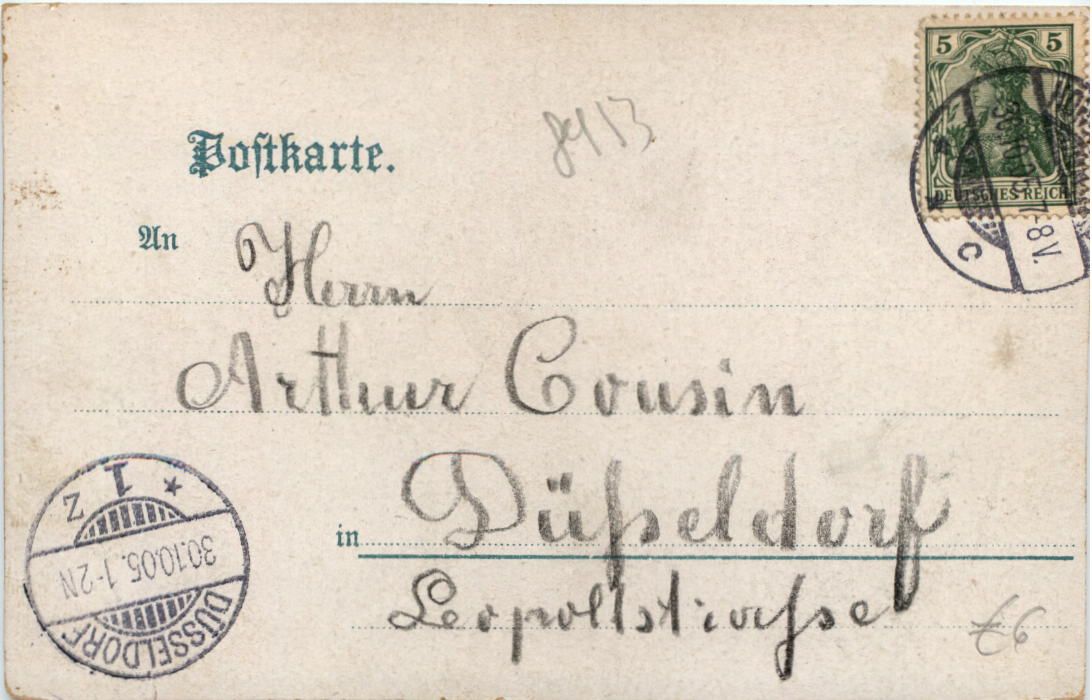 5 5
DEUTSCHES REICH
7-8V.
C
Postkarte.
8413
An Herrn
Arthur Cousin
in Düßeldorf
Leopoldstraße
1 Z
30.10.05. 1-2N
DÜSSELDORF